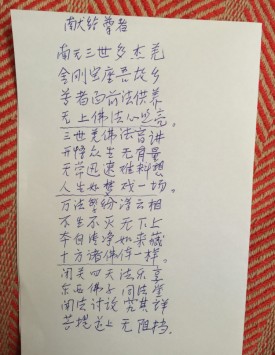 献给尊者
南无三世多杰羌
金刚宝座吾故乡
尊者面前法供养
无上佛法心灯亮。
三世羌佛法音讲
开悟众生无有量
无常迅速难料想
人生如梦戏一场。
万法缤纷浮云相
不生不灭无下上
本自清净如来藏
十方诸佛体一样。
闭关四天法乐享
东西佛子同法堂
闻法讨论究其详
菩提道上无阻挡。